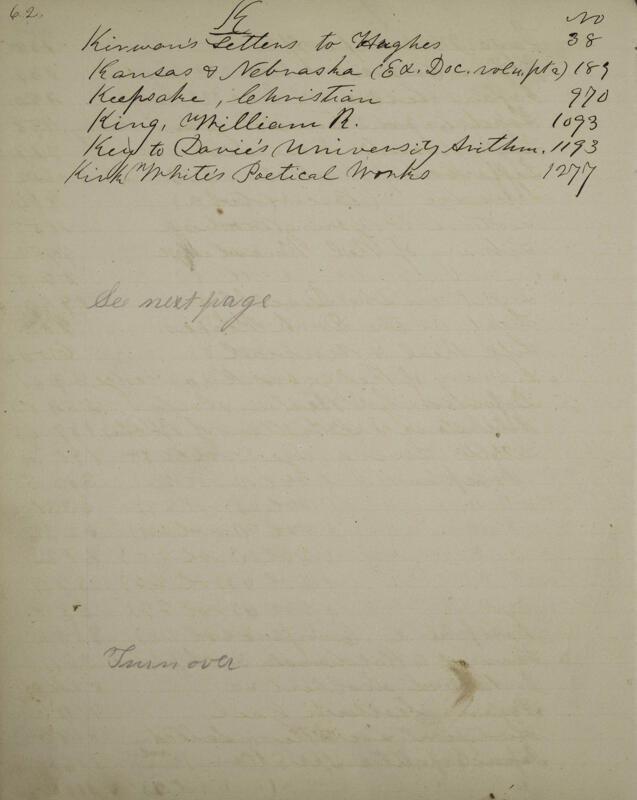 62.
K
No
Kirwan's Letters to Hughes 38
Kansas & Nebraska (Ex. Doc. vol. pt 2) 189
Keepsake, Christian 970
King, William R. 1093
Key to Davie's University Arithm. 1193
Kirk White's Poetical Works 1277
See next page
Turn over